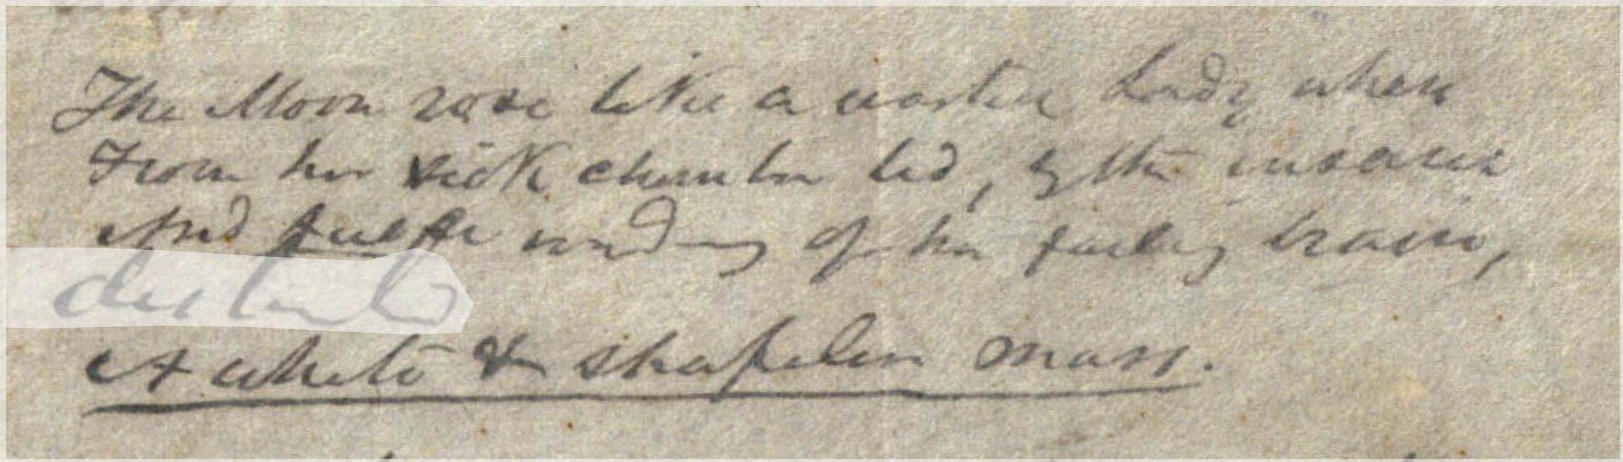 The Moon rose like a wasted Lady when
From her sick chamber led, by the insane
And feeble wandrings of her fading brain,
A white & shapeless mass.